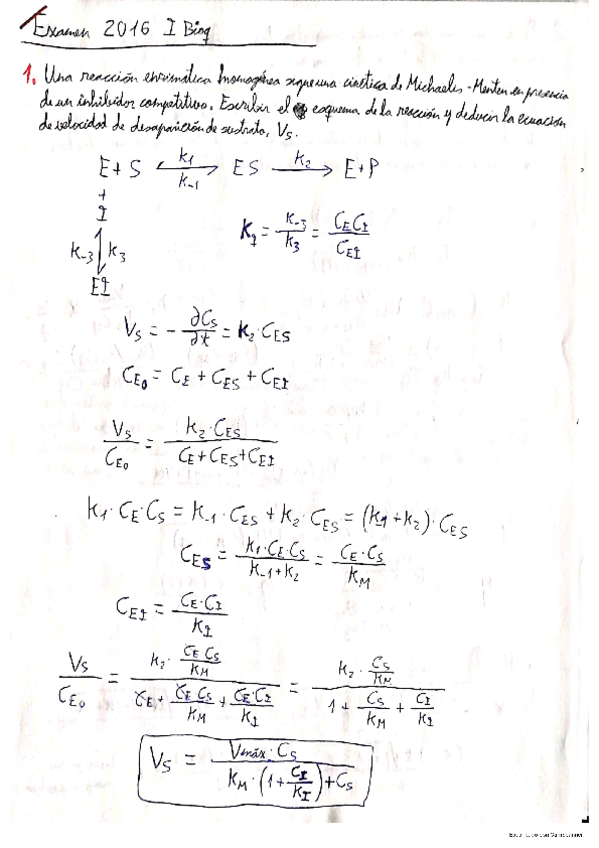 Examen 2016 I Bioq
1. Una reacción enzimática homogénea sigue una cinética de Michaelis-Menten en presencia
de un inhibidor competitivo. Escribir el esquema de la reacción y deducir la ecuación
de velocidad de desaparición de sustrato, Vs.
E + S ⇌ ES → E+P
k1 k-1 k2
+
I
k-3 k3
EI
K_I = k-3/k3 = C_E C_I / C_EI
V_S = - ∂C_S/∂t = k2·C_ES
C_E0 = C_E + C_ES + C_EI
V_S/C_E0 = k2·C_ES / (C_E + C_ES + C_EI)
k1·C_E·C_S = k-1·C_ES + k2·C_ES = (k1+k2)·C_ES
C_ES = k1·C_E·C_S / (k-1+k2) = C_E·C_S / K_M
C_EI = C_E·C_I / K_I
V_S/C_E0 = (k2· C_E C_S/K_M) / (C_E + C_E C_S/K_M + C_E·C_I/K_I) = (k2· C_S/K_M) / (1 + C_S/K_M + C_I/K_I)
V_S = Vmáx·C_S / (K_M·(1 + C_I/K_I) + C_S)